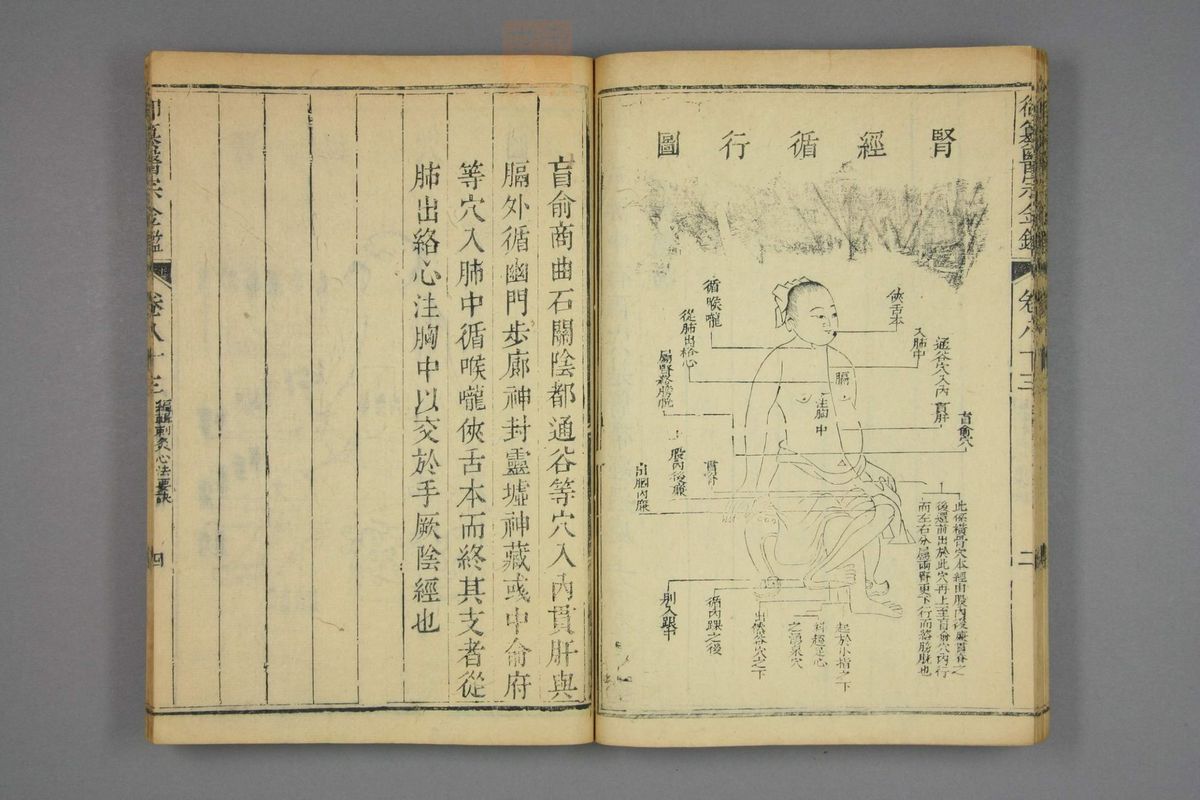 腎經循行圖
俠舌本
入肺中
循喉嚨
從肺出絡心
屬腎絡膀胱
膈
注胸中
通谷穴入內貫肝
肓俞穴
貫脊
上股內後廉
出膕內廉
此係橫骨穴本經由股內後廉貫脊之
後還前出於此穴再上至肓俞穴內行
而左右分屬兩腎更下行而絡膀胱也
起於小指之下
斜趨足心
之湧泉穴
出然谷穴之下
循內踝之後
別入跟中
御纂醫宗金鑑
卷八十三
二
肓俞商曲石關陰都通谷等穴入內貫肝與
膈外循幽門步廊神封靈墟神藏彧中俞府
等穴入肺中循喉嚨俠舌本而終其支者從
肺出絡心注胸中以交於手厥陰經也
御纂醫宗金鑑
卷八十三
編輯刺灸心法要訣
四